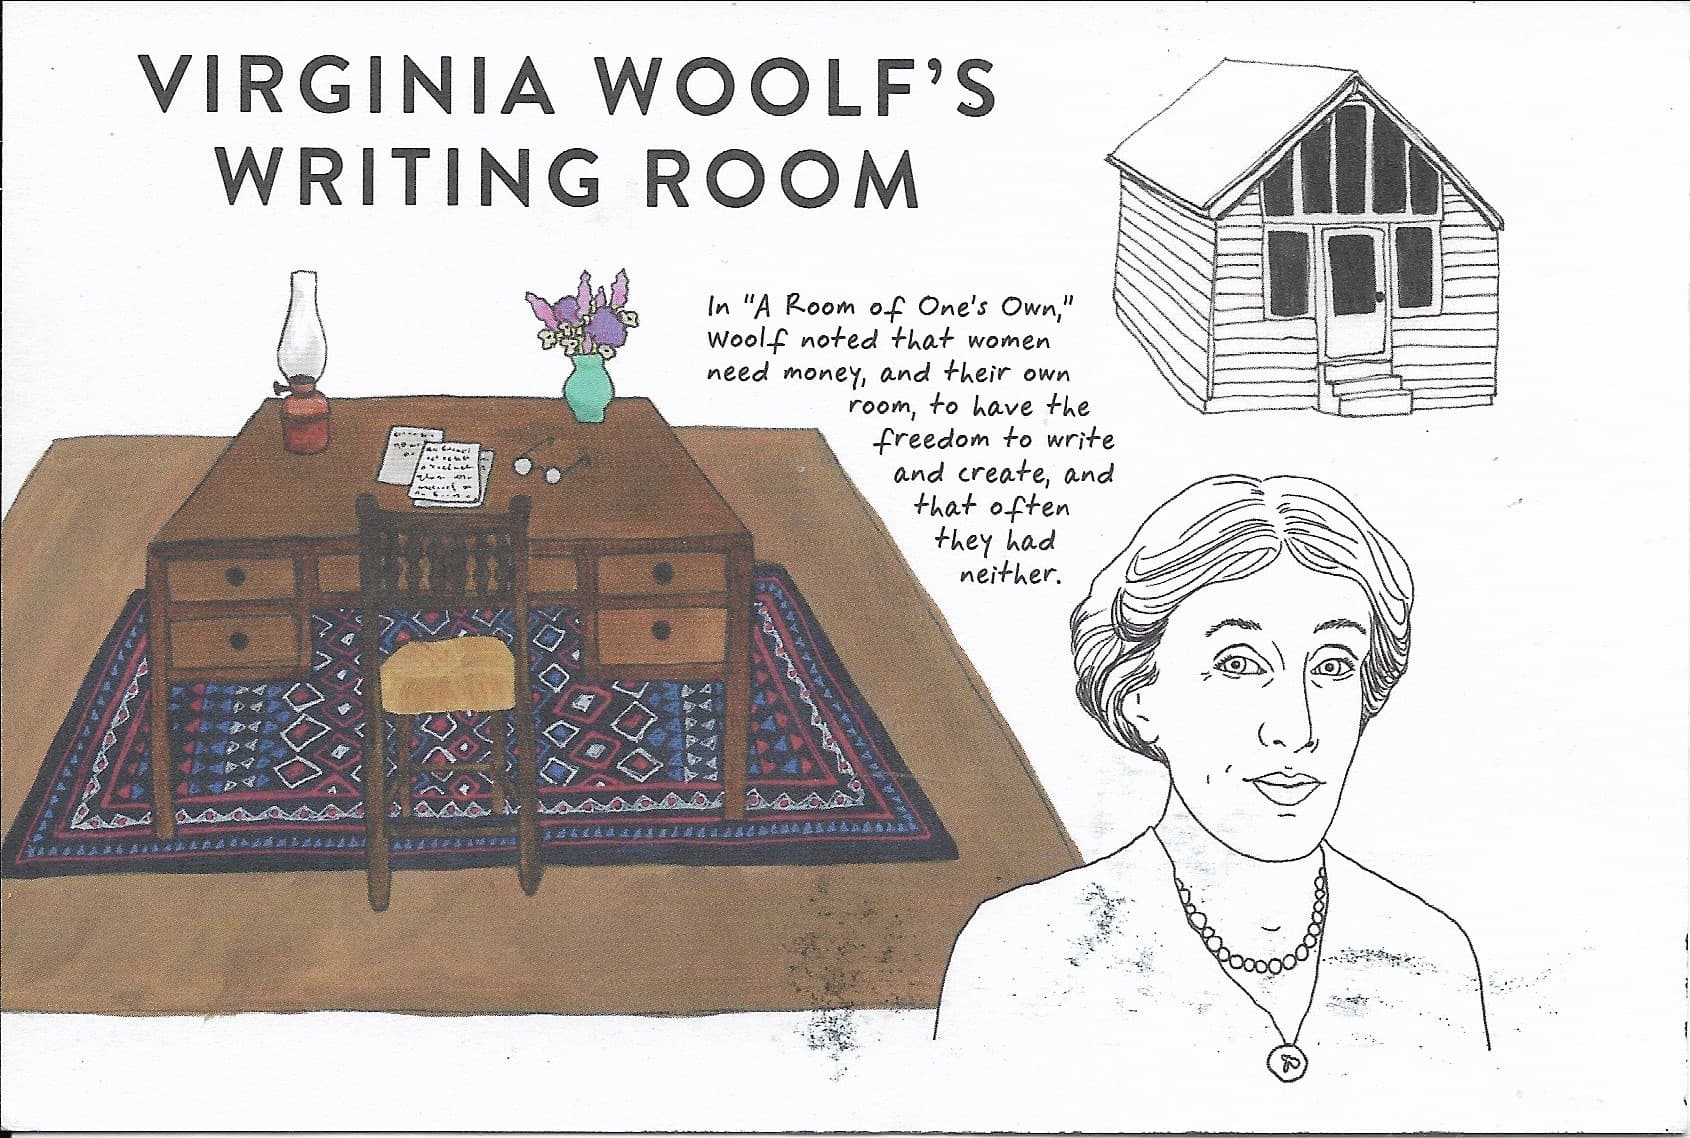 VIRGINIA WOOLF'S
WRITING ROOM
In "A Room of One's Own,"
Woolf noted that women
need money, and their own
room, to have the
freedom to write
and create, and
that often
they had
neither.